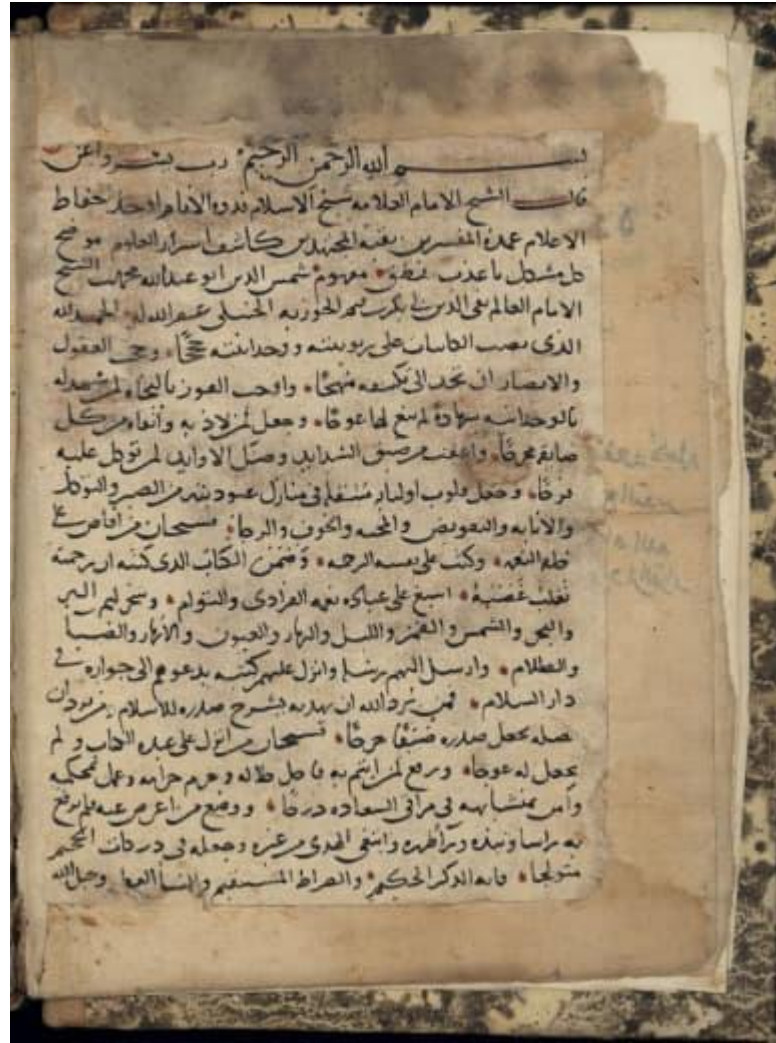 بسم الله الرحمن الرحيم رب يسر واعن
قال الشيخ الامام العلامه شيخ الاسلام قدوة الانام اوحد حفاظ
الاعلام عمدة المفسرين بقية المجتهدين كاشف اسرار العلوم موضح
كل مشكل باعذب منطق مفهوم شمس الدين ابو عبدالله محمد بن الشيخ
الامام العالم تقي الدين ابي بكر بن قيم الجوزيه الحنبلي عفر الله له الحمد لله
الذي نصب الكاينات على ربوبيته ووحدانيته حججا وحجب العقول
والابصار ان تجد الى تكييفه منهجا واوجب الفوز بالنجاه لمن شهد له
بالوحدانيه شهادة لم يبغ لها عوجا وجعل لمن لاذ به واتقاه من كل
ضايقه مخرجا واعقب من ضيق الشدايد وضنك الاوابد لمن توكل عليه
فرجا وجعل قلوب اوليايه متنقله في منازل عبوديته من الصبر والتوكل
والانابه والتفويض والمحبه والخوف والرجا فسبحان من افاض على
خلقه النعمه وكتب على نفسه الرحمه وضمن الكتاب الذي كتبه ان رحمته
تغلب غضبه اسبغ على عباده نعمه الفرادى والتوام وسخر لهم البر
والبحر والشمس والقمر والليل والنهار والعيون والانهار والضيا
والظلام وارسل اليهم رسله وانزل عليهم كتبه يدعوهم الى جواره في
دار السلام فمن يرد الله ان يهديه يشرح صدره للاسلام ومن يرد ان
يضله يجعل صدره ضيقا حرجا فسبحان من انزل على عبده الكتاب ولم
يجعل له عوجا ورفع لمن ايتم به فاحل حلاله وحرم حرامه وعمل بمحكمه
وآمن بمتشابهه في مراقي السعاده درجا ووضع من اعرض عنه فلم يرفع
به راسا ونبذه ورآ ظهره وابتغى الهدى من غيره وجعله في دركات الجحيم
متولجا فانه الذكر الحكيم والصراط المستقيم والنبأ العظيم وحبل الله